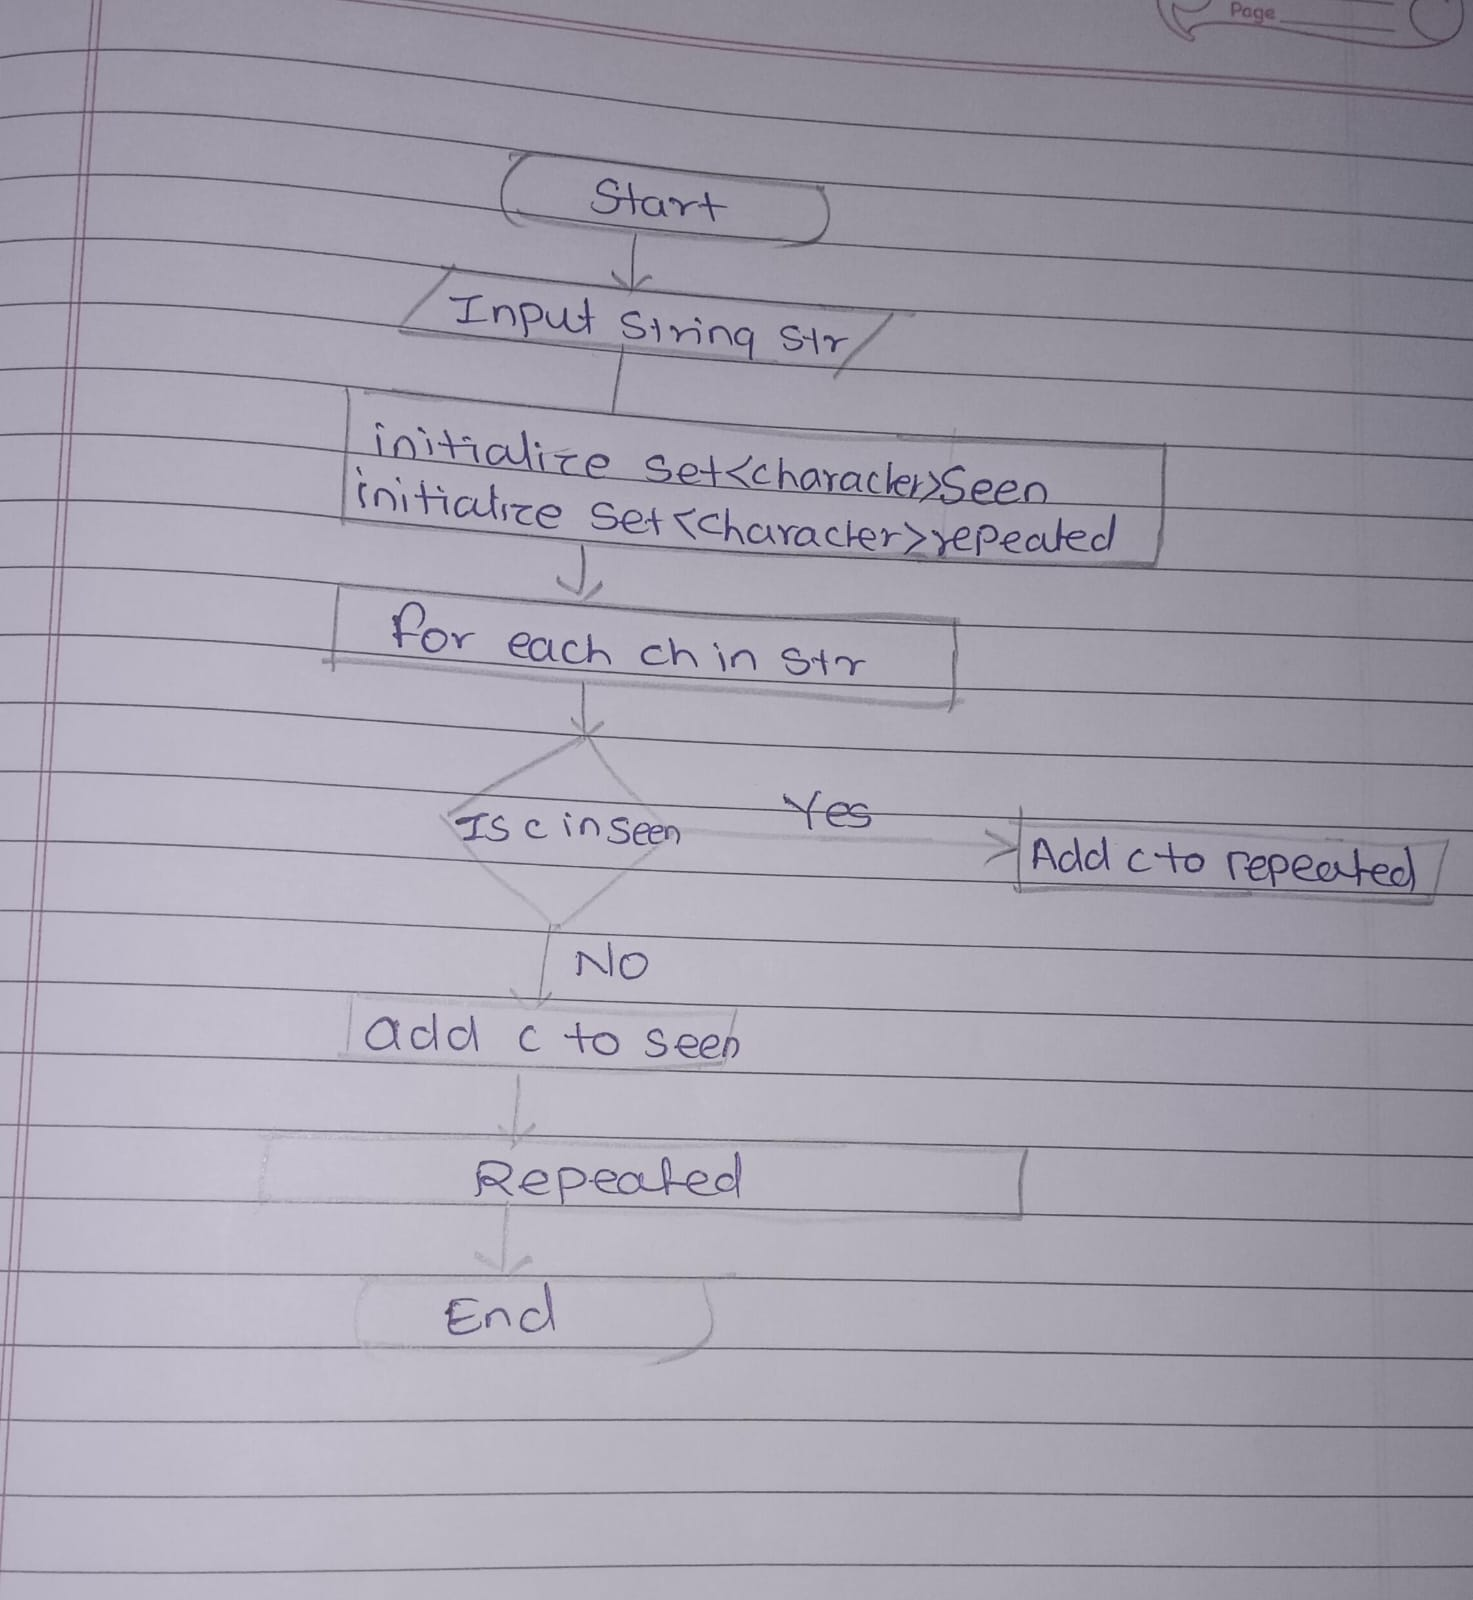 Page
Start
Input String Str
initialize Set<character>Seen
initialize Set<character>repeated
for each ch in Str
Is c in seen
Yes
Add c to repeated
NO
add c to seen
Repeated
End